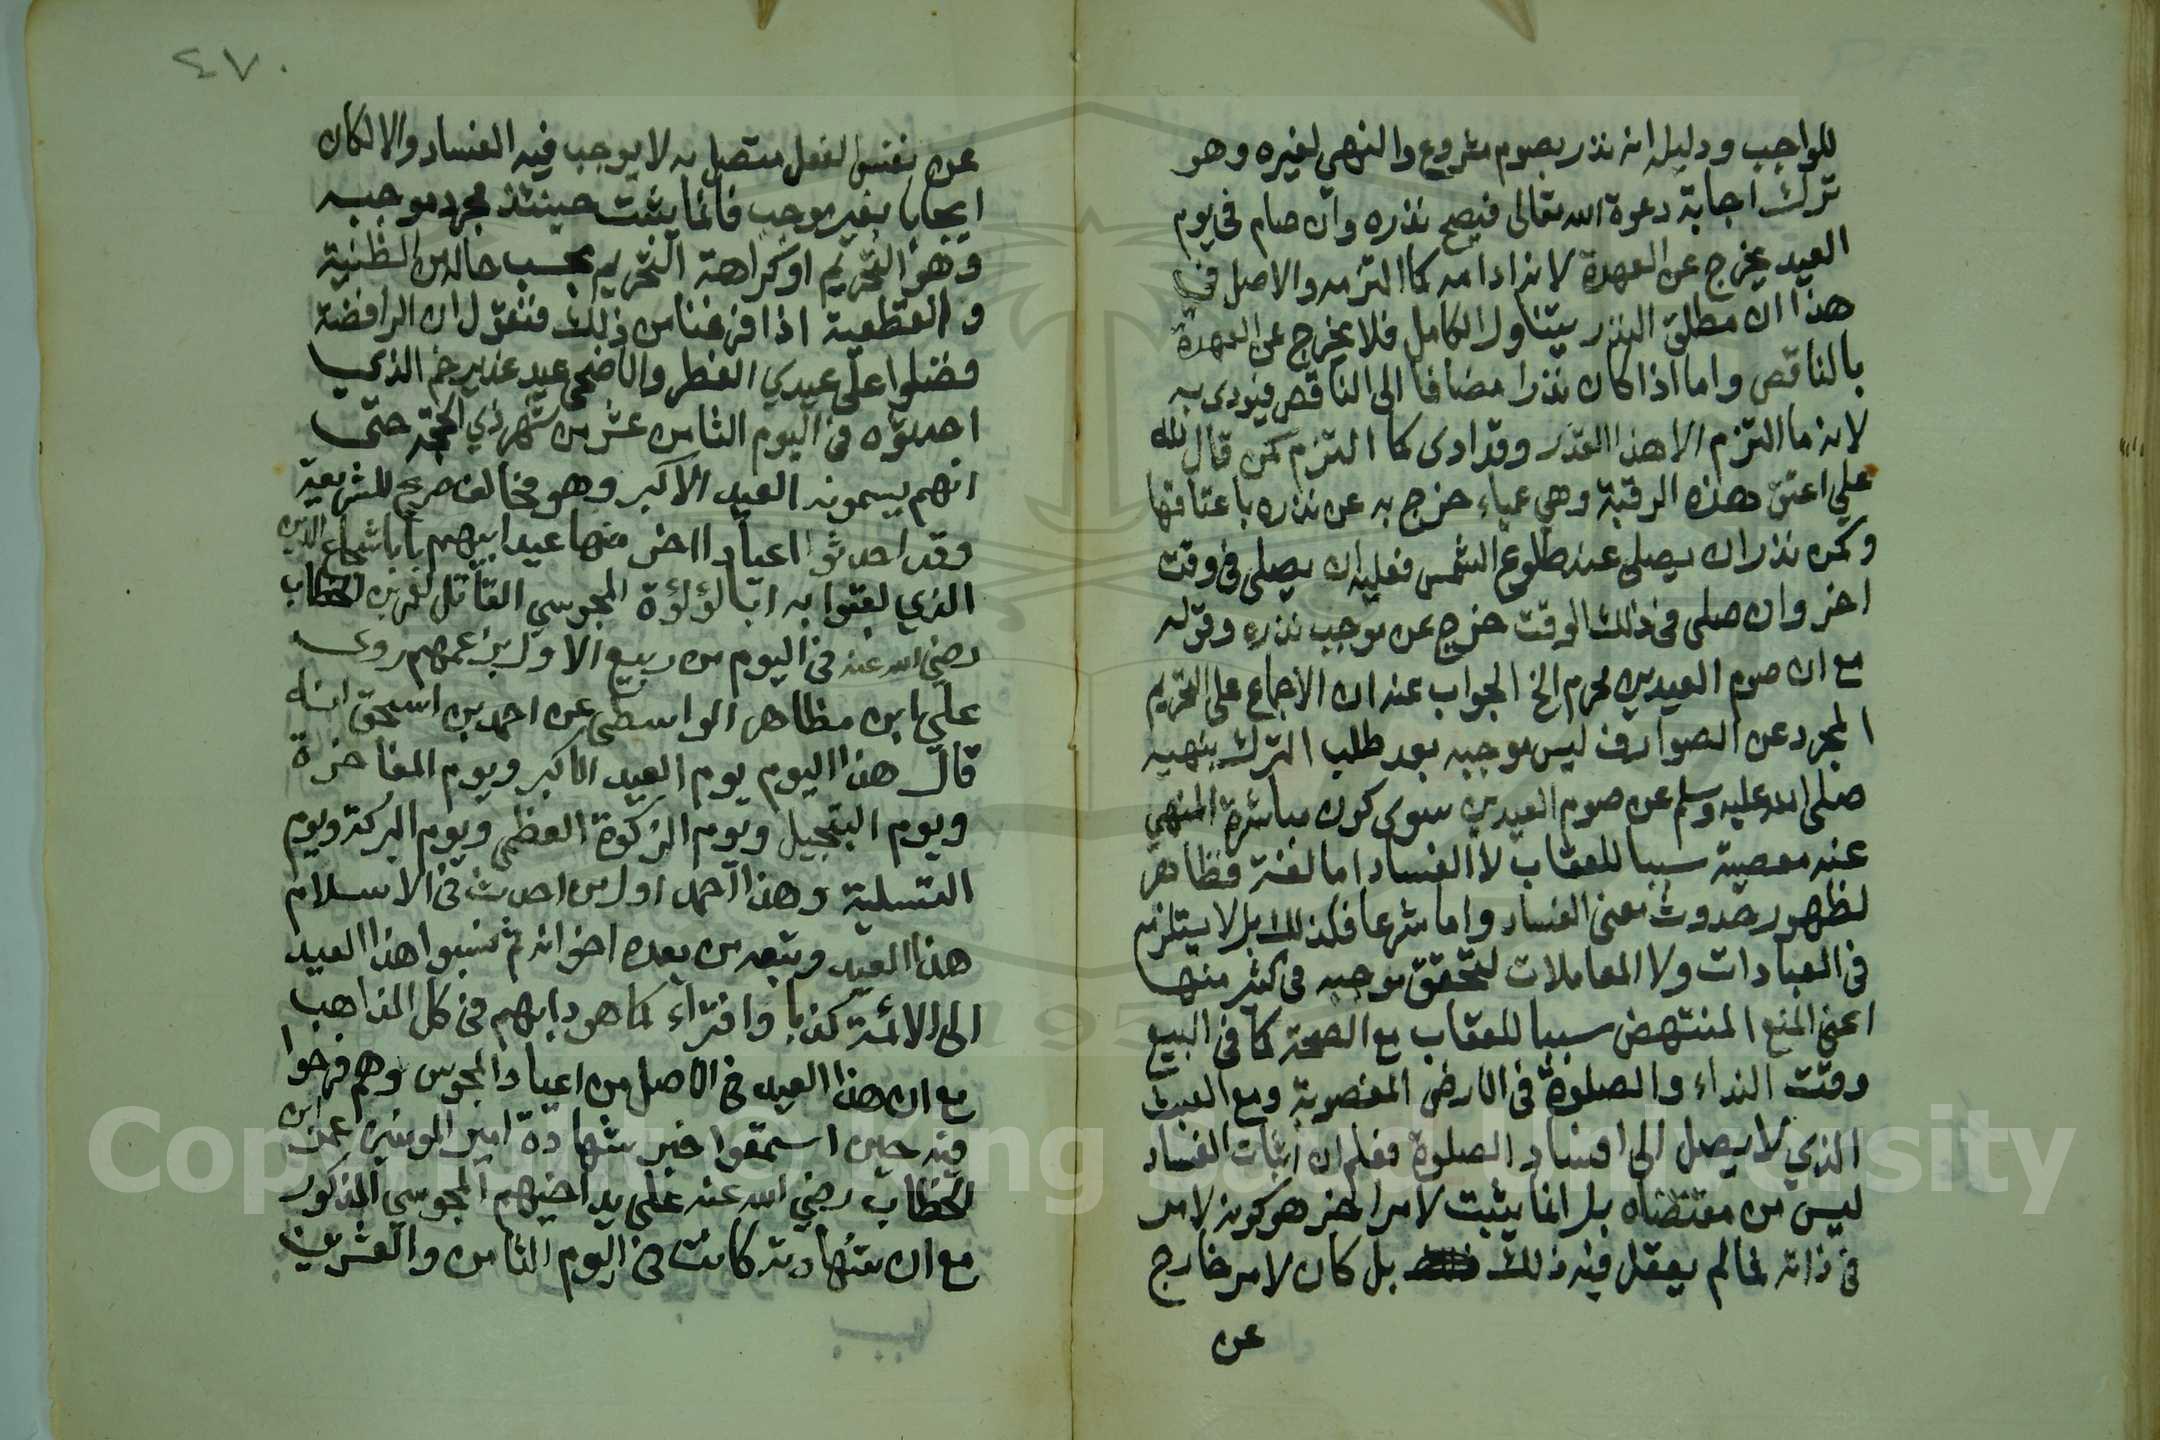 للواجب ودليله انه نذر بصوم مشروع والنهي لغيره وهو
ترك اجابة دعوة الله تعالى فيصح نذره وان صام في يوم
العيد يخرج عن العهدة لانه اداه كما التزمه والاصل في
هذا ان مطلق النذر يتناول الكامل فلا يخرج عن العهدة
بالناقص واما اذا كان نذرا مضافا الى الناقص فيؤدى به
لانه ما التزم الا هذا القدر وقد ادى كما التزم كمن قال لله
علي اعتق هذه الرقبة وهي عمياء خرج به عن نذره باعتاقها
وكمن نذر ان يصلي عند طلوع الشمس فعليه ان يصلي في وقت
اخر وان صلى في ذلك الوقت خرج عن موجب نذره وقوله
مع ان صوم العيدين محرم الخ الجواب عنه ان الاجماع على التحريم
المجرد عن الصوارف ليس موجبه بعد طلب الترك بنهيه
صلى الله عليه وسلم عن صوم العيدين سوى كون مباشرة المنهي
عنه معصية سببا للعقاب لا الفساد اما لغة فظاهر
لظهور حدوث معنى الفساد واما شرعا فكذلك بل لا يستلزم
في العبادات ولا المعاملات لتحقق موجبه في كثير منها
اعني المنع المنتهض سببا للعقاب مع الصحة كما في البيع
وقت النداء والصلوة في الارض المغصوبة ومع العبث
الذي لا يصل الى افساد الصلوة فعلم ان اثبات الفساد
ليس من مقتضاه بل انما يثبت لامر اخر هو كونه لامر
في ذاته فما لم يعقل فيه ذلك بل كان لامر خارج
عن
٤٧٠
عن نفس الفعل متصل به لا يوجب فيه الفساد والا لكان
ايجابا بغير موجب فانما يثبت حينئذ مجرد موجبه
وهو التحريم او كراهة التحريم بحسب حاله من الظنية
و القطعية اذا فرغنا من ذلك فنقول ان الرافضة
فضلوا على عيدي الفطر والاضحى عيد غدير خم الذي
احدثوه في اليوم الثامن عشر من شهر ذي الحجة حتى
انهم يسمونه العيد الاكبر وهو مخالف صريح للشريعة
وقد احدثوا اعيادا اخر منها عيد ابيهم بابا شجاع الدين
الذي لقبوا به ابا لؤلؤة المجوسي القاتل لعمر بن الخطاب
رضي الله عنه في اليوم من ربيع الاول بزعمهم روى
علي ابن مظاهر الواسطي عن احمد بن اسحق انه
قال هذا اليوم يوم العيد الاكبر ويوم المفاخرة
ويوم التبجيل ويوم الزكوة العظمى ويوم البركة ويوم
التسلية وهذا احمد اول من احدث في الاسلام
هذا العيد وتبعه من بعده اخوانه ثم نسبوا هذا العيد
الى الائمة كذبا وافتراء كما هو دابهم في كل المذاهب
مع ان هذا العيد في الاصل من اعياد المجوس وهم فرحوا
فيه حين استمعوا خبر شهادة امير المومنين عمر بن
الخطاب رضي الله عنه على يد اخيهم المجوسي المذكور
مع ان شهادته كانت في اليوم الثامن والعشرين
Copyright © King Saud University